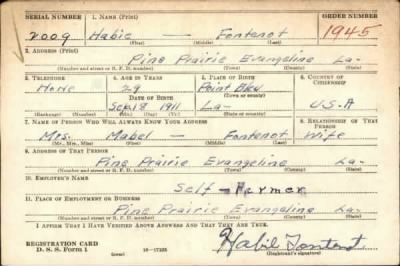 SERIAL NUMBER 1. NAME (Print) ORDER NUMBER
2009 Habie — Fontenot 1945
(First) (Middle) (Last)
2. ADDRESS (Print)
Pine Prairie Evangeline La-
(Number and street or R. F. D. number) (Town) (County) (State)
3. TELEPHONE 4. AGE IN YEARS 5. PLACE OF BIRTH 6. COUNTRY OF CITIZENSHIP
None 29 Point Blu
DATE OF BIRTH (Town or county)
Sep. 18 1911 La- U.S.A
(Exchange) (Number) (Mo.) (Day) (Yr.) (State or country)
7. NAME OF PERSON WHO WILL ALWAYS KNOW YOUR ADDRESS 8. RELATIONSHIP OF THAT PERSON
Mrs. Mabel — Fontenot Wife
(Mr., Mrs., Miss) (First) (Middle) (Last)
9. ADDRESS OF THAT PERSON
Pine Prairie Evangeline La-
(Number and street or R. F. D. number) (Town) (County) (State)
10. EMPLOYER'S NAME
Self - Farmer
11. PLACE OF EMPLOYMENT OR BUSINESS
Pine Prairie Evangeline La-
(Number and street or R. F. D. number) (Town) (County) (State)
I AFFIRM THAT I HAVE VERIFIED ABOVE ANSWERS AND THAT THEY ARE TRUE.
REGISTRATION CARD
D. S. S. Form 1 16—17105 Habil Fontenot
(over) (Registrant's signature)